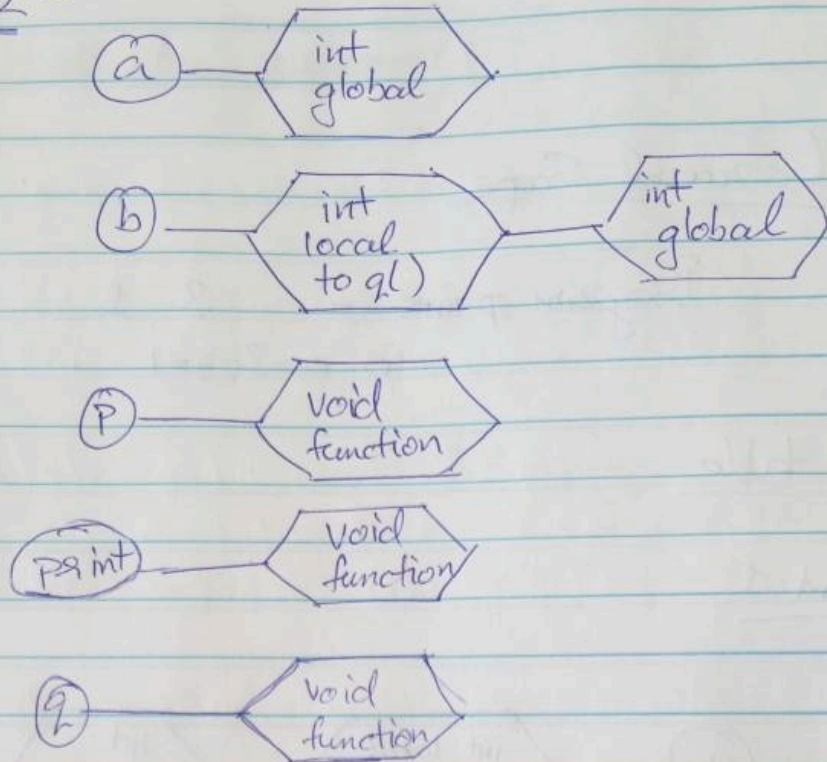 a
int
global
b
int
local
to q()
int
global
p
void
function
print
void
function
q
void
function